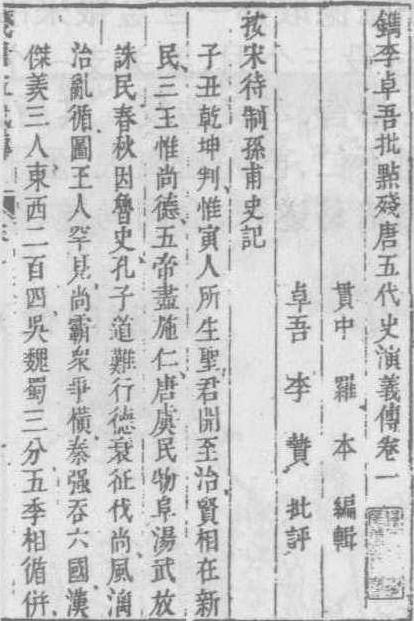 鐫李卓吾批點殘唐五代史演義傳卷一
貫中 羅本 編輯
卓吾 李贄 批評
按宋待制孫甫史記
子丑乾坤判、惟寅人所生、聖君開至治、賢相在新
民、三王惟尚德、五帝盡施仁、唐虞民物阜、湯武放
誅民、春秋因魯史、孔子道難行、德衰征伐尚、風漓
治亂循、圖王人罕見、尚霸衆爭橫、秦强吞六國、漢
傑羨三人、東西二百四、吳魏蜀三分、五季相循併、